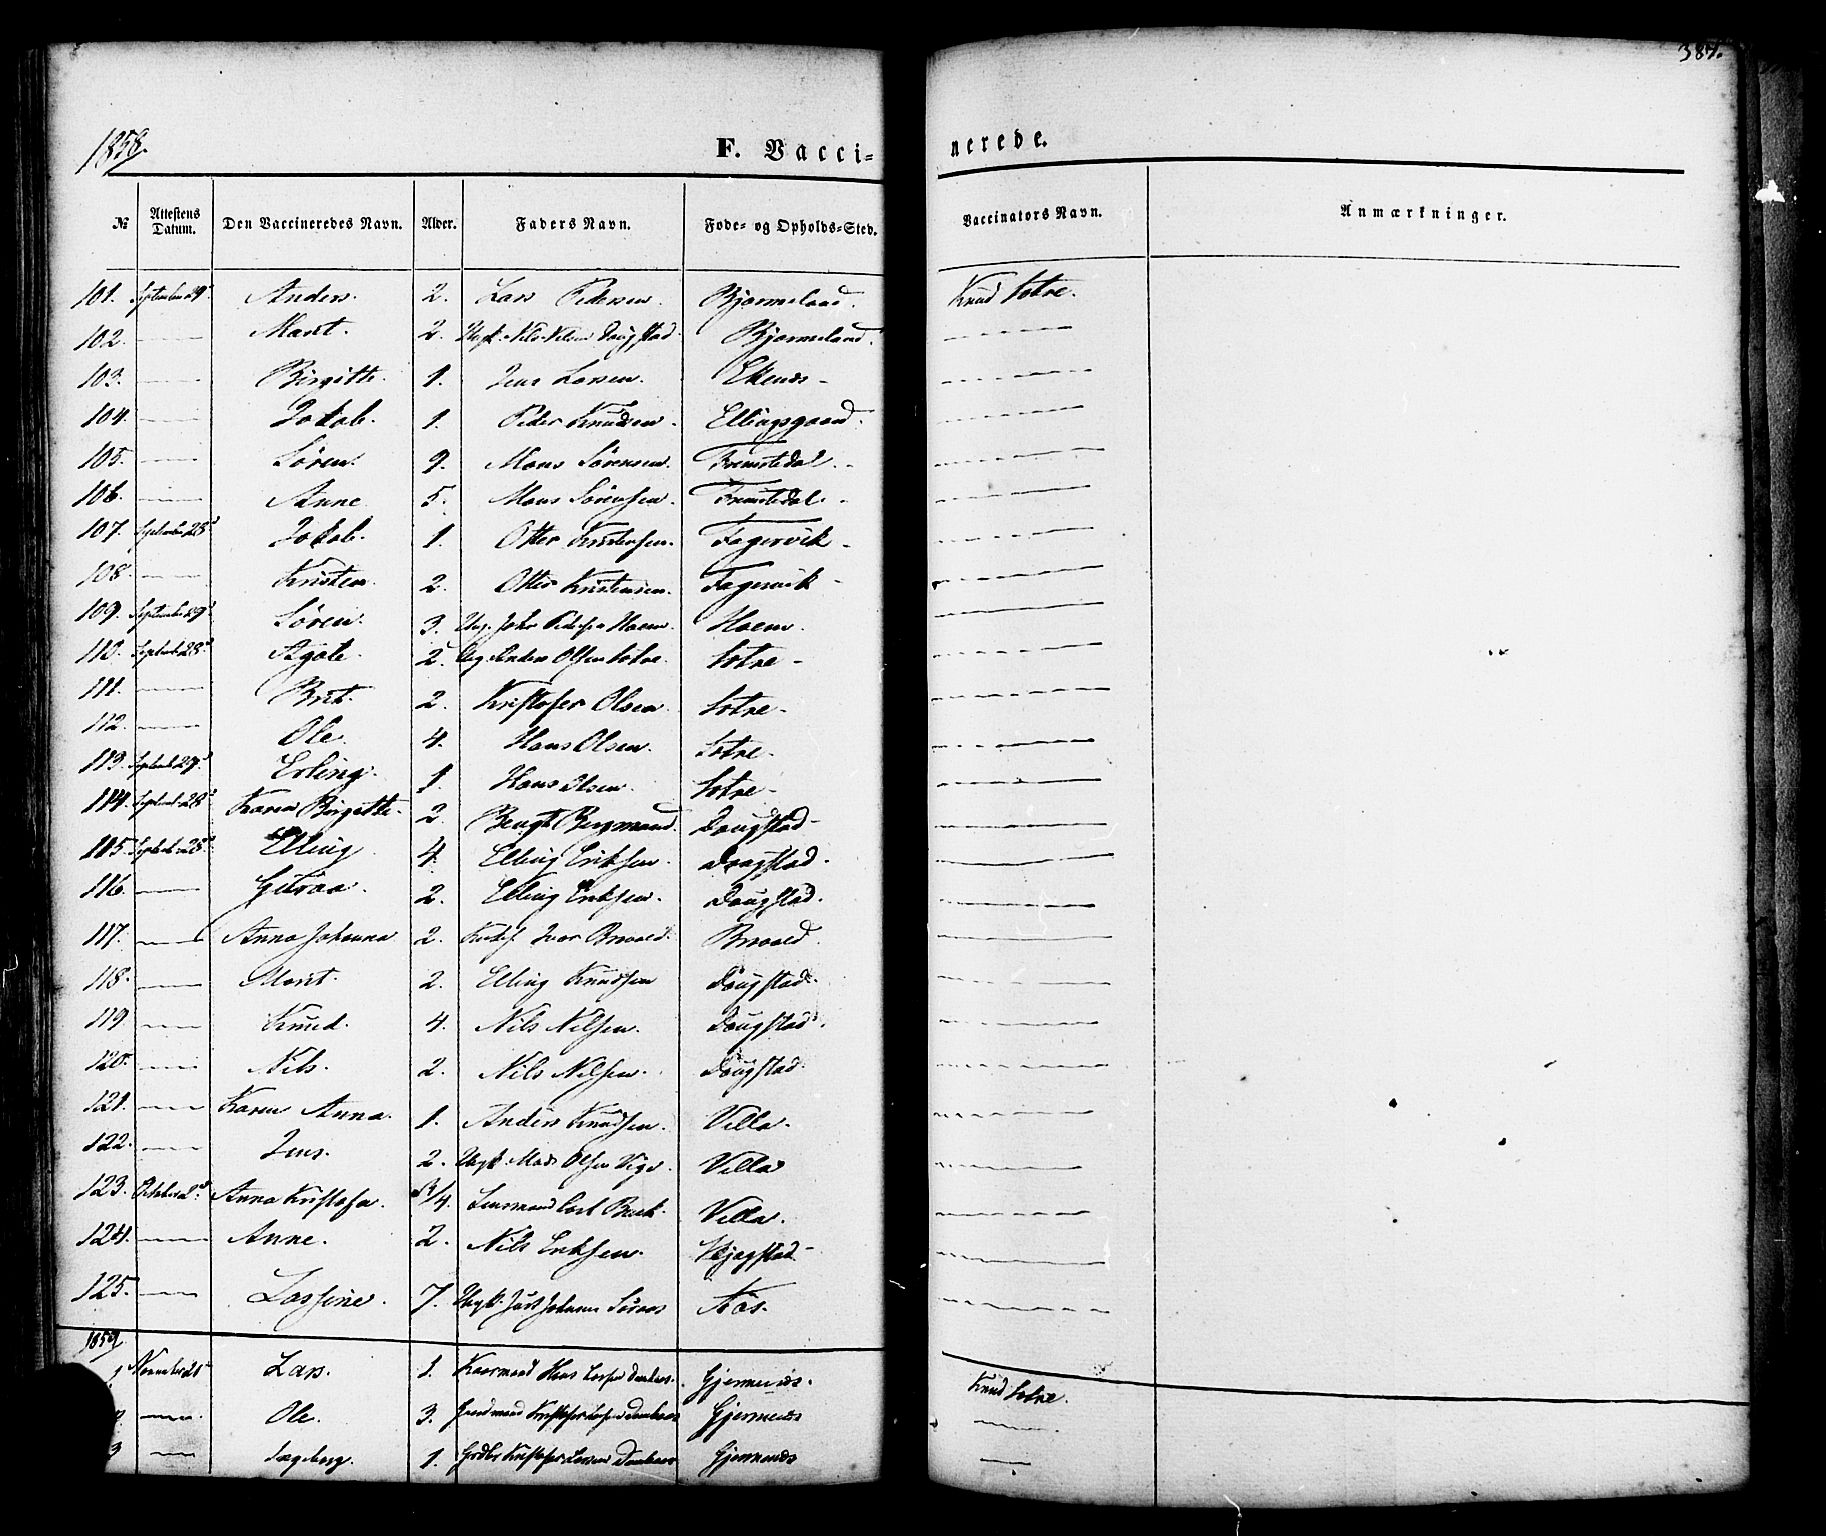 387.
1858.
F. Vaccinerede.
№ Attestens Datum. Den Vaccineredes Navn. Alder. Faders Navn. Føde- og Opholds-Sted. Vaccinators Navn. Anmærkninger.
101. September 29d Anders. 2. Lars Pedersen. Bjermeland. Knud Sotre.
102. Marit. 2. Ungk. Nils Nilsen Dougstad. Bjermeland.
103. Birgitte. 1. Jens Larsen. Ekenæs
104. Jakob. 1. Peder Knudsen. Ellingsgaard.
105. Sören. 9. Mons Sörensen. Fremstedal.
106. Anne 5. Mons Sörensen. Fremstedal.
107. September 28d Jakob. 1. Otter Kristensen. Fagervik
108. Kristen. 2. Otter Kristensen. Fagervik
109. September 29d Sören. 3. Ung. John Pedersen Hoem. Hoem.
110. Septemb. 28d Agate. 2. Ung. Anders Olsen Sotre. Sotre
111. Brit. 2. Kristofer Olsen. Sotre
112. Ole. 4. Hans Olsen. Sotre
113. Septemb. 29d Erling. 1. Hans Olsen. Sotre
114. Septemb. 28d Karen Birgitte. 2. Bengt Bergmand. Dougstad
115. Septemb. 28d Elling 4. Elling Eriksen. Dougstad.
116. Guroa. 2. Elling Eriksen. Dougstad.
117. Anna Johanna 2. Ivar Brovold. Brovold.
118. Marit. 2. Elling Knudsen Dougstad.
119 Knud. 4. Nils Nilsen. Dougstad.
120. Nils. 2. Nils Nilsen. Dougstad.
121. Karen Anna. 1. Anders Knudsen. Villa.
122. Jens. 2. Ungk. Mads Olsen Vige. Villa
123. Oktober 2d Anna Kristofa. 3/4. Lensmand Carl Buck. Villa.
124. Anne. 2. Nils Eriksen. Skjegstad
125. Lassine. 7. Ungk. Johannes Aas.
1859
1 Lars. 1. Kaarmand Hans Larsen Gjermenæs. Knud Sotre.
2. Ole. 3. Kristofer Larsen Gjermenæs
3 Ingeborg. 1. Kristofer Larsen Gjermenæs